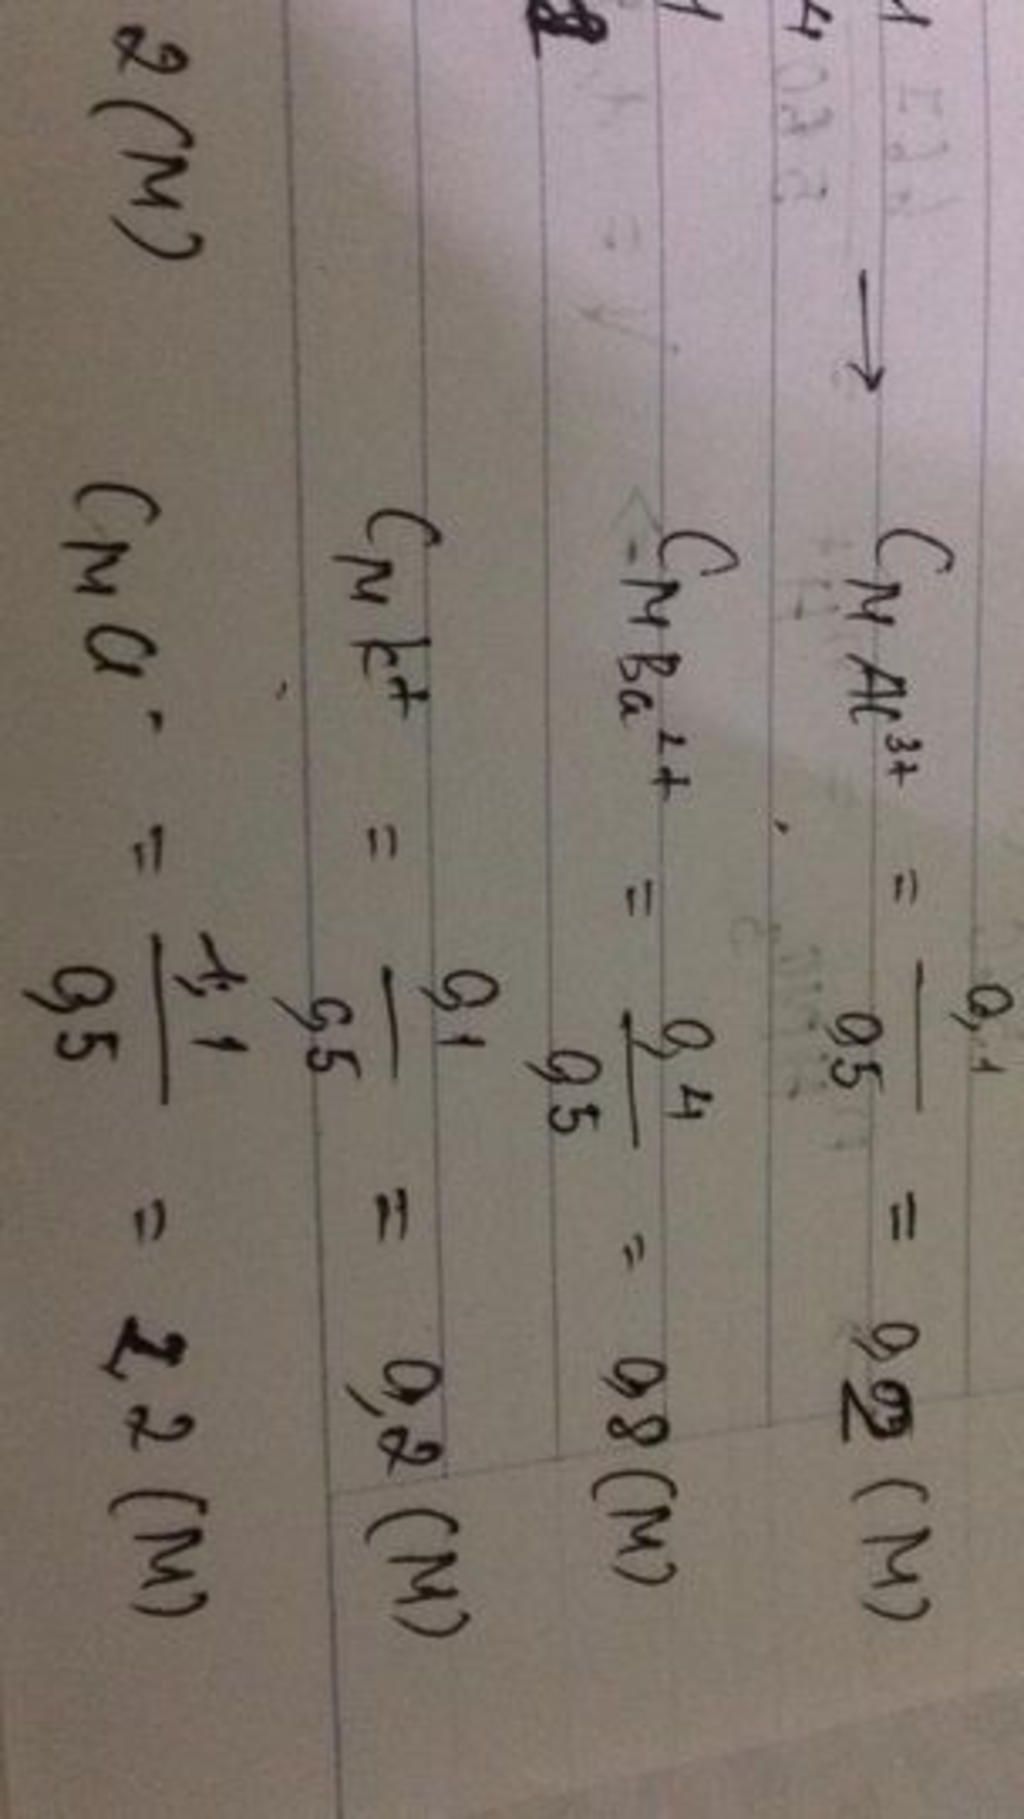 1 → C_M Al³⁺ = 0,1 / 0,5 = 0,2 (M)
4
1 C_M Ba²⁺ = 0,4 / 0,5 = 0,8 (M)
C_M K⁺ = 0,1 / 0,5 = 0,2 (M)
2 (M) C_M Cl⁻ = 1,1 / 0,5 = 2,2 (M)